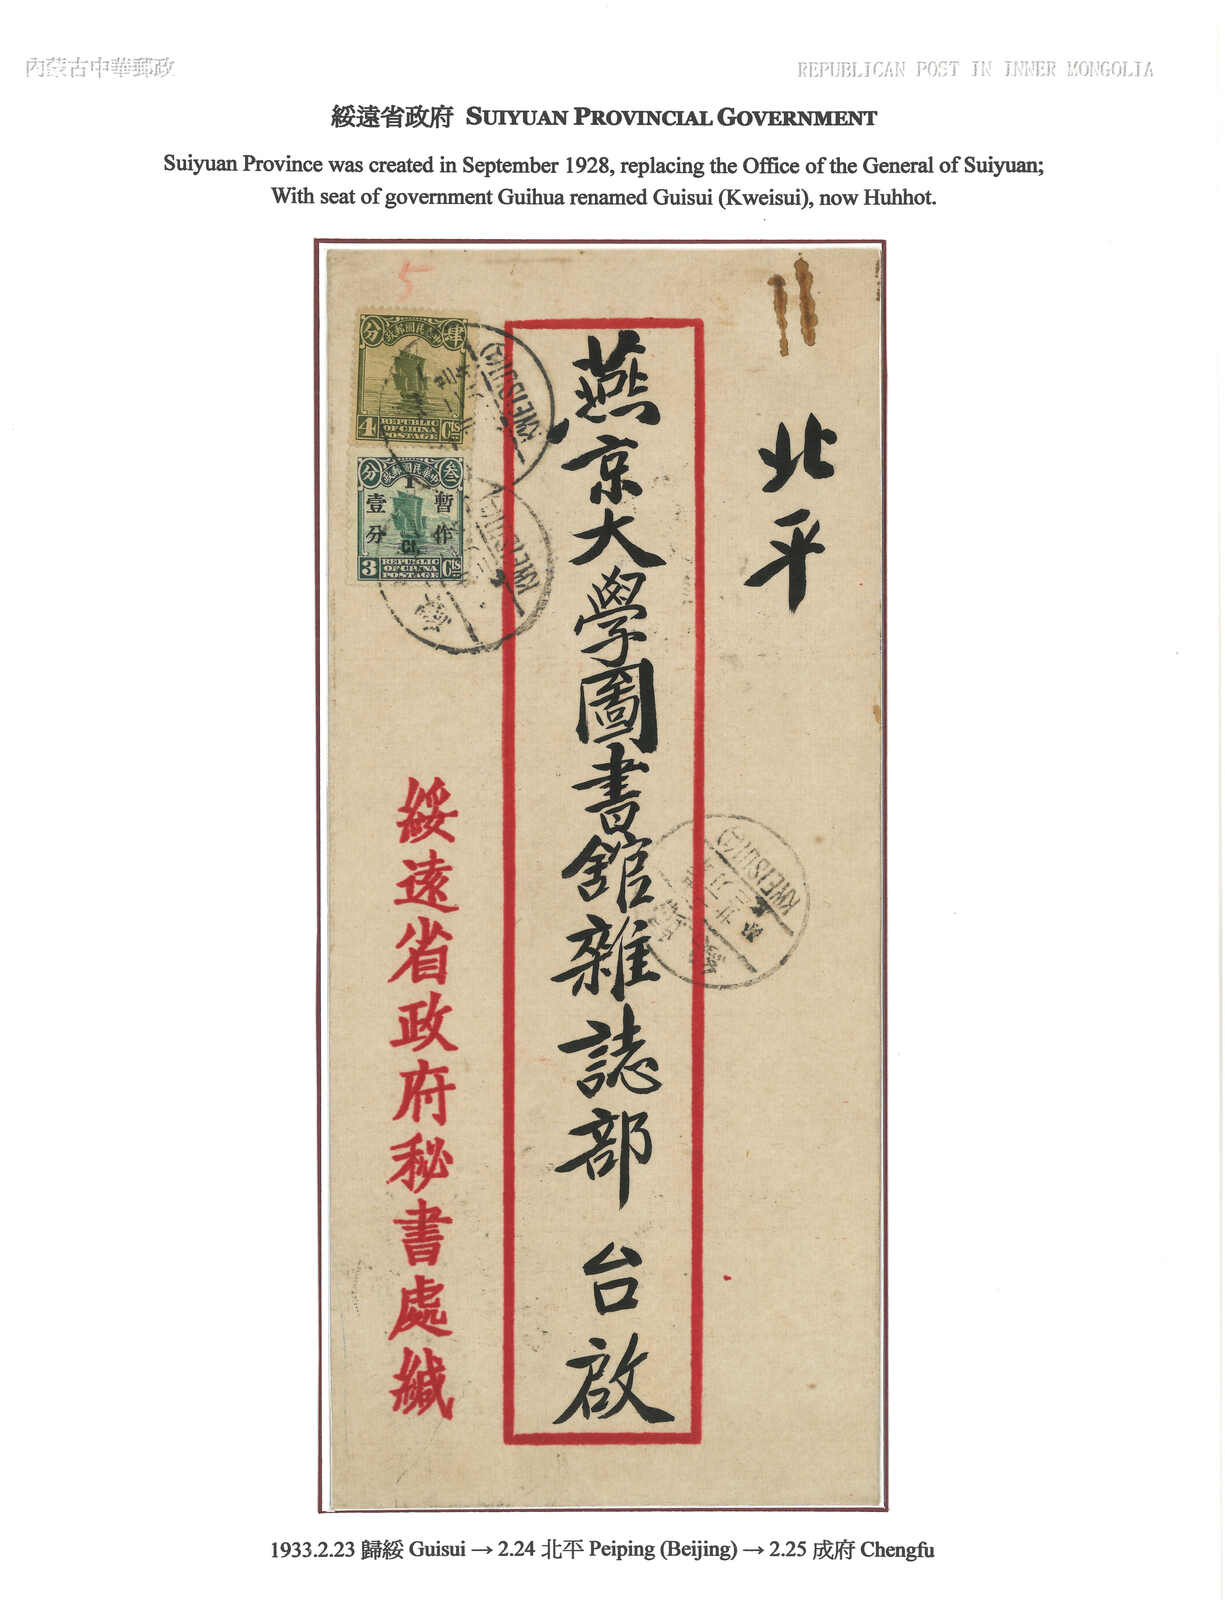 內蒙古中華郵政
REPUBLICAN POST IN INNER MONGOLIA
綏遠省政府 SUIYUAN PROVINCIAL GOVERNMENT
Suiyuan Province was created in September 1928, replacing the Office of the General of Suiyuan;
With seat of government Guihua renamed Guisui (Kweisui), now Huhhot.
5
北平
燕京大學圖書舘雜誌部 台啟
綏遠省政府秘書處緘
分 中華民國郵政 肆
4 REPUBLIC OF CHINA POSTAGE Cts
分 中華民國郵政 叁
暫作
壹分
1 Ct.
3 REPUBLIC OF CHINA POSTAGE Cts
KWEISUI
KWEISUI
KWEISUI
1933.2.23 歸綏 Guisui → 2.24 北平 Peiping (Beijing) → 2.25 成府 Chengfu